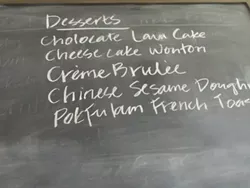 Desserts
Cholocate Lava Cake
Cheese Cake Wonton
Crème Brulée
Chinese Sesame Dough
Pokfulam French Toas